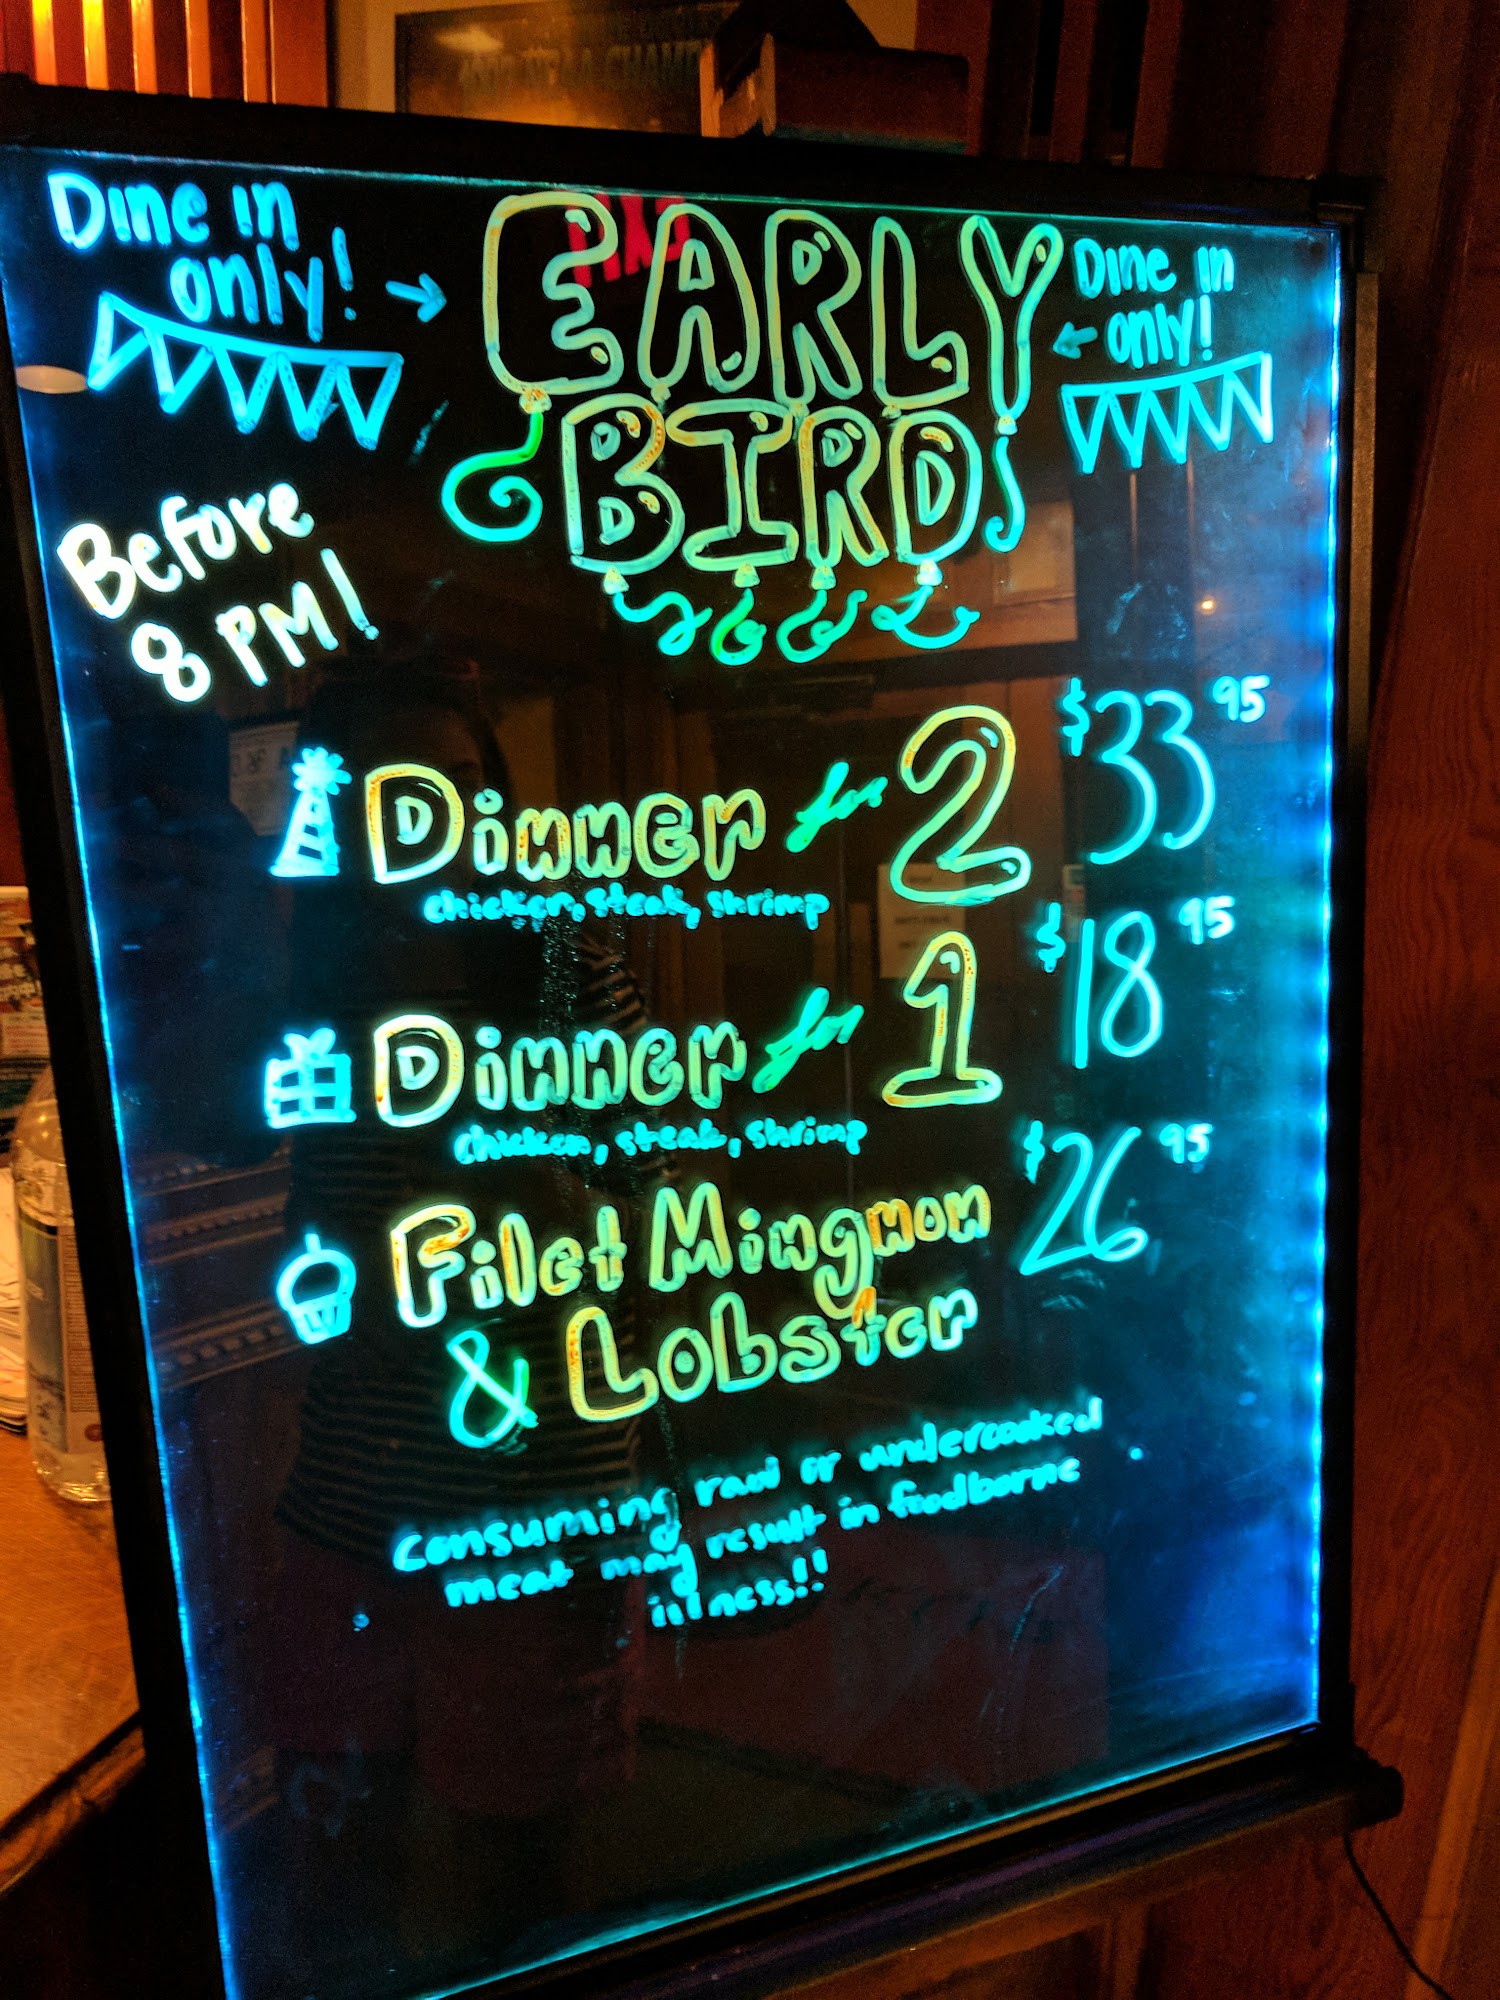 Dine in
only!
EARLY
BIRD
Dine in
only!
Before
8 PM!
Dinner for 2
$33 95
chicken, steak, shrimp
Dinner for 1
$18 95
chicken, steak, shrimp
Filet Mingnon
& Lobster
$26 95
Consuming raw or undercooked
meat may result in foodborne
illness!!